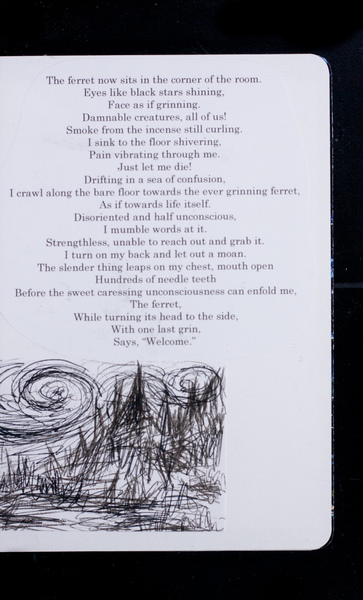 The ferret now sits in the corner of the room.
Eyes like black stars shining,
Face as if grinning.
Damnable creatures, all of us!
Smoke from the incense still curling.
I sink to the floor shivering,
Pain vibrating through me.
Just let me die!
Drifting in a sea of confusion,
I crawl along the bare floor towards the ever grinning ferret,
As if towards life itself.
Disoriented and half unconscious,
I mumble words at it.
Strengthless, unable to reach out and grab it.
I turn on my back and let out a moan.
The slender thing leaps on my chest, mouth open
Hundreds of needle teeth
Before the sweet caressing unconsciousness can enfold me,
The ferret,
While turning its head to the side,
With one last grin,
Says, “Welcome.”